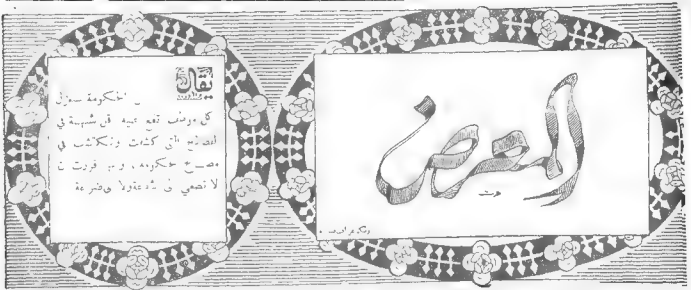 المعرض
يقال
ان الحكومة ستعزل
كل موظف تقع عليه اقل شبهة في
الفضائح التي كشفت وتكتشف في
مصالح الحكومة، وقد قررت ان
لا تصغي الى شفاعة ولا ضراعة